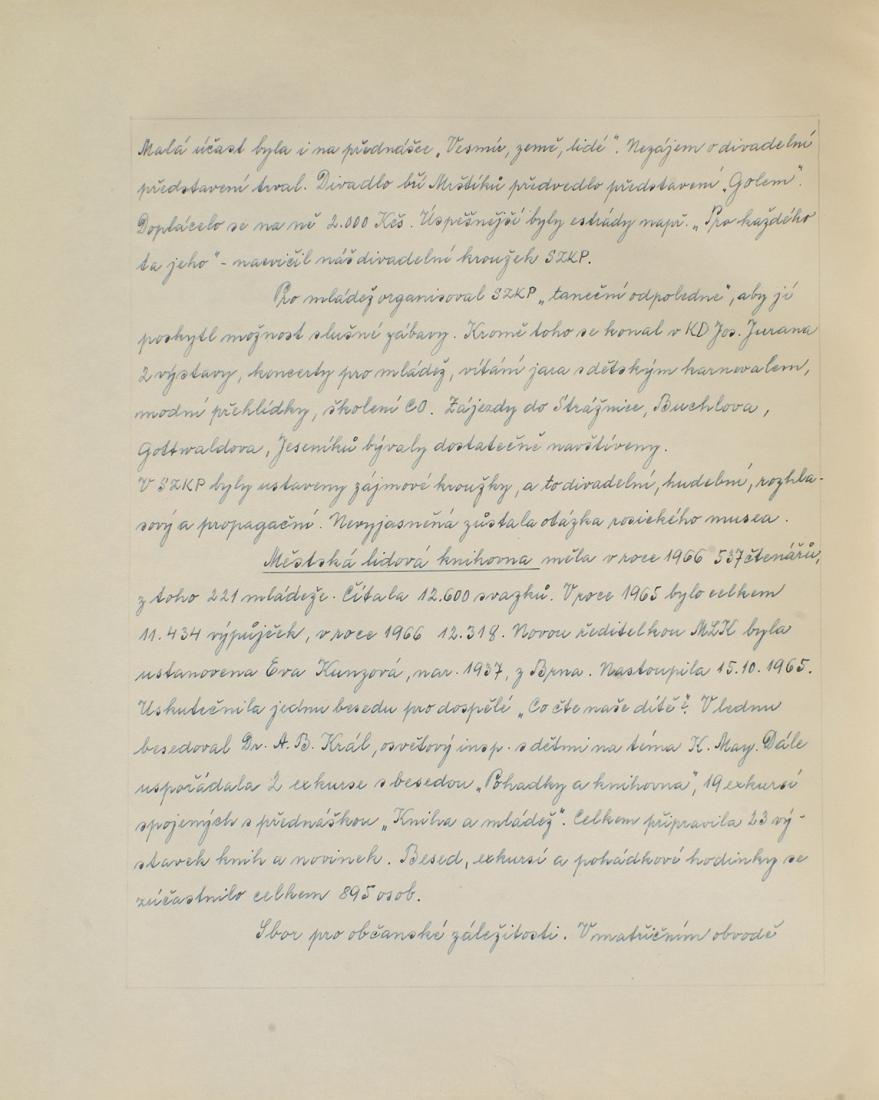 Malá účast byla i na přednášce „Vesmír, země, lidé". Nezájem o divadelní
představení trval. Divadlo bří Mrštíků předvedlo představení „Golem".
Doplácelo se na ně 2.000 Kčs. Úspěšnější byly estrády např. „Pro každého
ta jeho" - nacvičil náš divadelní kroužek SZKP.
Pro mládež organisoval SZKP „taneční odpoledne", aby jí
poskytl možnost slušné zábavy. Kromě toho se konal v KD Jos. Jurana
2 výstavy, koncerty pro mládež, vítání jara s dětským karnevalem,
modní přehlídky, školení CO. Zájezdy do Strážnice, Buchlova,
Gottwaldova, Jeseníků bývaly dostatečně navštíveny.
V SZKP byly ustaveny zájmové kroužky, a to divadelní, hudební, rozhla-
sový a propagační. Nevyjasněná zůstala otázka rosického musea.
Městská lidová knihovna měla v roce 1966 537 čtenářů,
z toho 221 mládeže. Čítala 12.600 svazků. V roce 1965 bylo celkem
11.434 výpůjček, v roce 1966 12.318. Novou ředitelkou MLK byla
ustanovena Eva Kunzová, nar. 1937, z Brna. Nastoupila 15.10.1965.
Uskutečnila jednu besedu pro dospělé „Co čte naše dítě?" V lednu
besedoval Dr. A. B. Král, osvětový insp. s dětmi na téma K. May. Dále
uspořádala 2 exkurse s besedou „Pohadky a knihovna", 19 exkursí
spojených s přednáškou „Kniha a mládež". Celkem připravila 23 vý-
stavek knih a novinek. Besed, exkursí a pohádkové hodinky se
zúčastnilo celkem 895 osob.
Sbor pro občanské záležitosti. V matričním obvodě